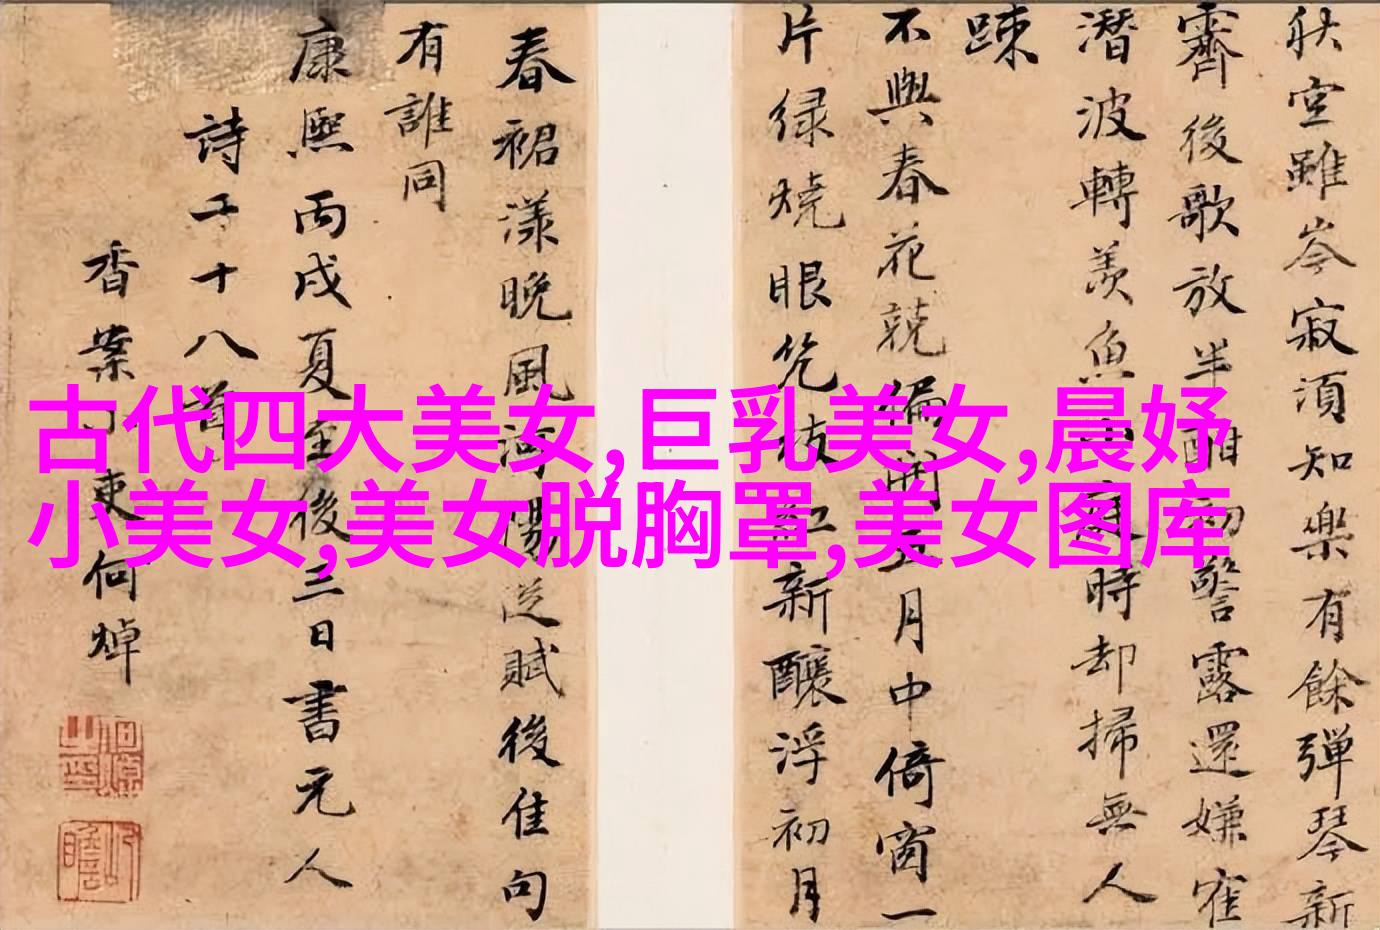 秋空雖岑寂須知樂有餘彈琴新
霽後歌放半酣初警露還嫌寉
潛波轉羨魚中庭時却掃無人
踈
不與春花競偏開五月中倚窗一
片緑燒眼幾枝紅新釀浮初月
春裙漾晚風河陽從賦後佳句
有誰同
康熙丙戌夏至後三日書元人
詩二十八首
香案小吏何焯
古代四大美女,巨乳美女,晨妤
小美女,美女脱胸罩,美女图库